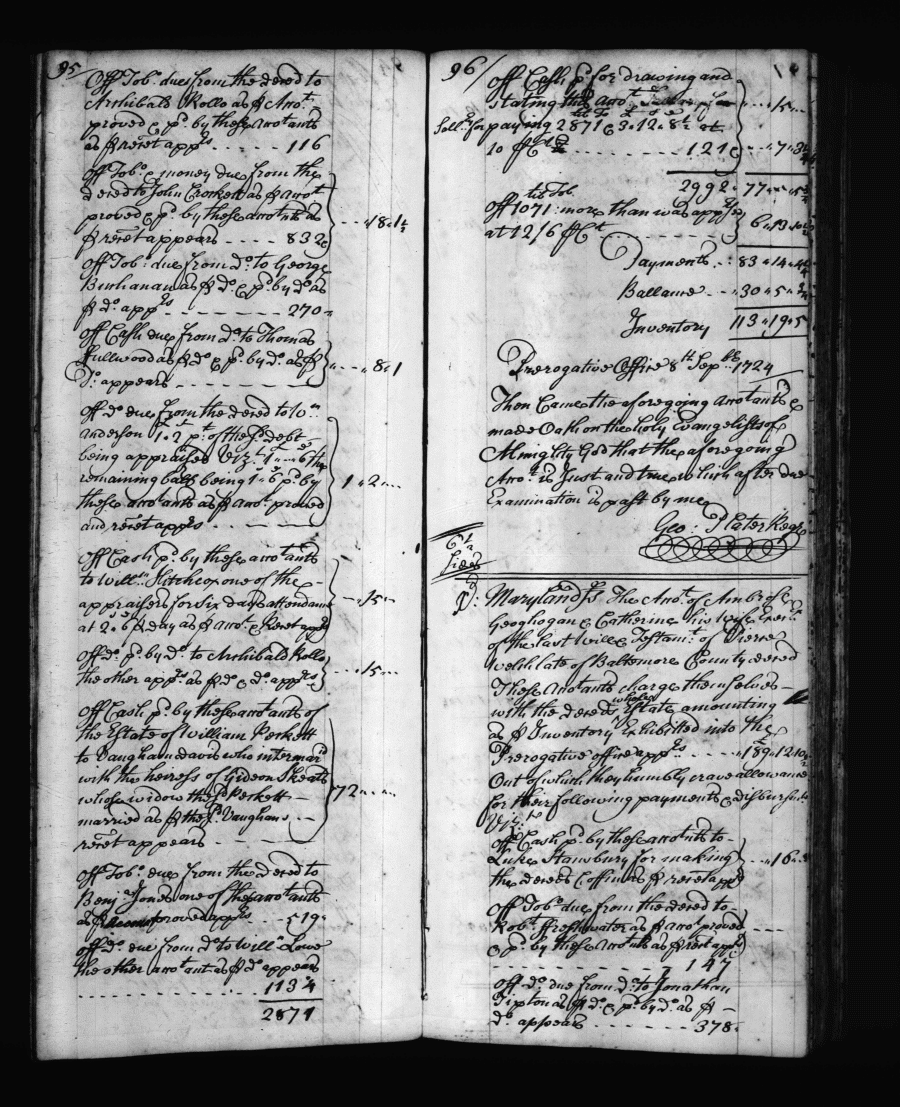 95
Off Tobo. due from the deced to
Archibald Rollo as P Accot.
proved & pd. by these Accotants
as P recet apprs. - - - - - 116
Off Tobo. & money due from the
deced to John Crockett as P Accot
proved & pd. by these accotants as
P recet appears - - - - 832 - - - „18„1½
Off Tobo: due from do. to George
Buchanan as P do. & pd. by do. as
P do. apprs - - - - - - 270
Off Cash due from do. to Thomas
Fullwood as P do. & pd. by do. as P
Do. appears - - - - - - „8„1
Off do. due from the deced to Wm.
Anderson
being appraised Vizt.
remaining half being 1„6 pd. by
these accotants as P accot. proved
and recet apprs. - - - - 1„2„--
Off Cash pd. by these accotants
to Willm. Hitchcox one of the
appraisers for six days attendance
at 2„6 P day as P accot. & Recet apprs - - „15„--
Off do. pd. by do. to Archibald Rollo
the other appr. as P do. & do. apprs - - „15„--
Off Cash pd. by these accotants of
the Estate of William Peckett
to Vaughan Davis who intermar'd
with the heiress of Gideon Skeats
whose widow the sd. Peckett
married as P the sd. Vaughans
recet appears - - - - 72„--„--
Off Tobo. due from the deced to
Benja. Jones one of these accotants
as P accot proved apprs - - 519
Off do. due from do. to Willm. Lowe
the other accotant as P do. appears
- - - - - - - - 1134
2871
96
Off Cash pd. for drawing and
stating this accot.
Sally. for paying 2871 & 3„12„8½ at
10 P Ct - - - - - - - - 121
2992„ 77„--„5½
Off 1071: more than was appr.
at 12/6 P Ct. 6„13„10½
Payments - - 83„14„4½
Ballance - - 30„5„½
Inventory 113„19„5
Prerogative Office 8th Sepbr. 1724
Then Came the aforegoing accotants &
made Oath on the holy Evangelists of
Almighty God that the aforegoing
Accot. is Just and true which after due
Examination is past by me
Geo: Plater
Maryland Ss The Accot. of Ambrose
Geoghogan & Catherine his wife Execrx.
of the last Will & Testamt. of Pierce
Welsh late of Baltemore County deced
These Accotants charge themselves
with the deceds whole Estate amounting
as P Inventory Exhibitted into the
Prerogative office apprs - - - - „189„12„10½
Out of which they humbly crave allowance
for their following payments & disbursmts.
Vizt.
Off Cash pd. by these accotants to
Luke Stansbury for making
the deceds Coffin as P recet apprs - - „16„8
Off Tobo. due from the deced to
Robt. ffreshwater as P accot proved
& pd. by these accotants as P recet apprs
- - - - - - - - 147
Off do. due from do. to Jonathan
Tipton as P do. & pd. by do. as P
do. appears - - - - - - 378